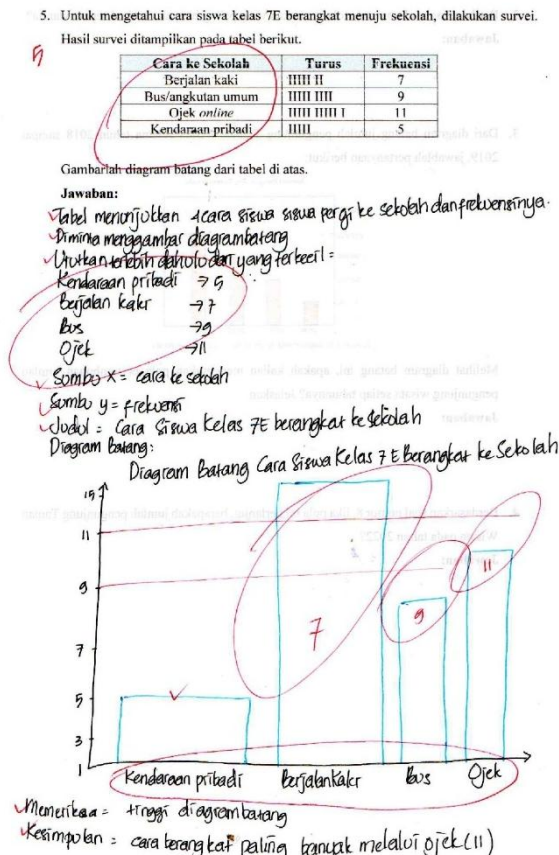 5. Untuk mengetahui cara siswa kelas 7E berangkat menuju sekolah, dilakukan survei.
Hasil survei ditampilkan pada tabel berikut.
5
Cara ke Sekolah Turus Frekuensi
Berjalan kaki IIIII II 7
Bus/angkutan umum IIIII IIII 9
Ojek online IIIII IIIII I 11
Kendaraan pribadi IIIII 5
Gambarlah diagram batang dari tabel di atas.
Jawaban:
Tabel menunjukkan 4 cara siswa siswa pergi ke sekolah dan frekuensinya.
Diminta menggambar diagram batang
Urutkan terlebih dahulu dari yang terkecil =
Kendaraan pribadi → 5
Berjalan kaki → 7
Bus → 9
Ojek → 11
Sumbu x = cara ke sekolah
Sumbu y = frekuensi
Judul = Cara Siswa Kelas 7E berangkat ke Sekolah
Diagram Batang:
Diagram Batang Cara Siswa Kelas 7E Berangkat ke Sekolah
15
11
9
7
5
3
1
7
9
11
Kendaraan pribadi Berjalan kaki Bus Ojek
Memeriksa = tinggi diagram batang
Kesimpulan = cara berangkat paling banyak melalui ojek (11)